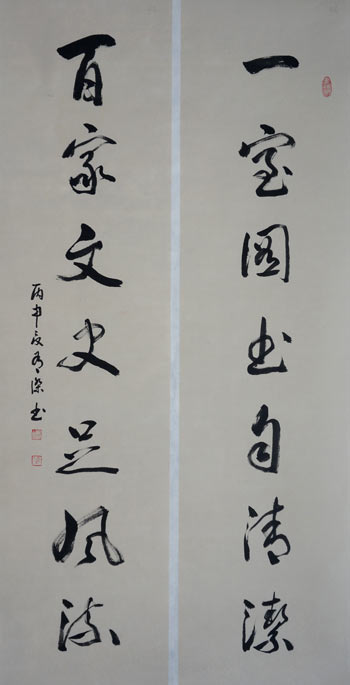 一室图书自清洁
百家文史足风流
丙申夏秀洁书